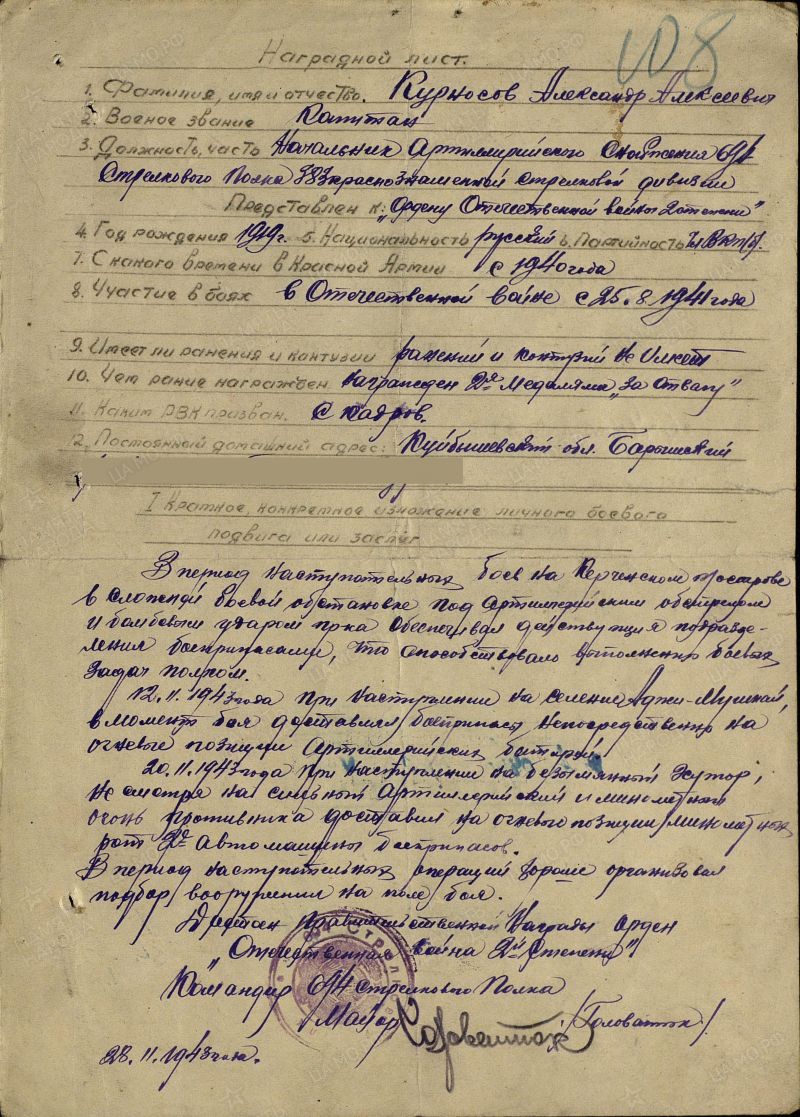 108
Наградной лист.
1. Фамилия, имя и отчество. Курносов Александр Алексеевич
2. Военое звание Капитан
3. Должность, часть Начальник Артиллерийского Снабжения 694
Стрелкового Полка 383 краснознаменной стрелковой дивизии
Представлен к: „Ордену Отечественной войны 2 степени"
4. Год рождения 1919г. 5. Национальность русский 6. Партийность чл ВКП(б).
7. С какого времени в Красной Армии с 1940 года
8. Участие в боях в Отечественной войне с 25.8.1941 года
9. Имеет ли ранения и контузии ранений и контузий не имеет
10. Чем ранне награжден Награжден 2я Медалями „За Отвагу"
11. Каким РВК призван. С кадров.
12. Постоянный домашний адрес: Куйбышевский обл. Барышский
I Краткое, конкретное изложение личного боевого
подвига или заслуг
В период наступательных боев на Керченском полострове
в сложной боевой обстановке под Артиллерийским обстрелом
и бомбовым ударом пр-ка обеспечивал действующия подразде-
ления боеприпасами, что способствовало выполнению боевых
задач полком.
12.11.1943 года при наступлении на селение Аджи-Мушкай,
в момент боя доставлял боеприпасы непосредственно на
огневые позиции Артиллерийских батарей.
20.11.1943 года при наступлении на безымянный хутор,
не смотря на сильный Артиллерийский и минометный
огонь противника доставил на огневые позиции минометных
рот 2е автомашины боеприпасов.
В период наступательных операций хорошо организовал
подбор вооружения на поле боя.
Достоен правительственной Награды орден
„Отечественная война 2й Степени"
Командир 694 стрелкового Полка
Майор /Головатюк/
28.11.1943 года.